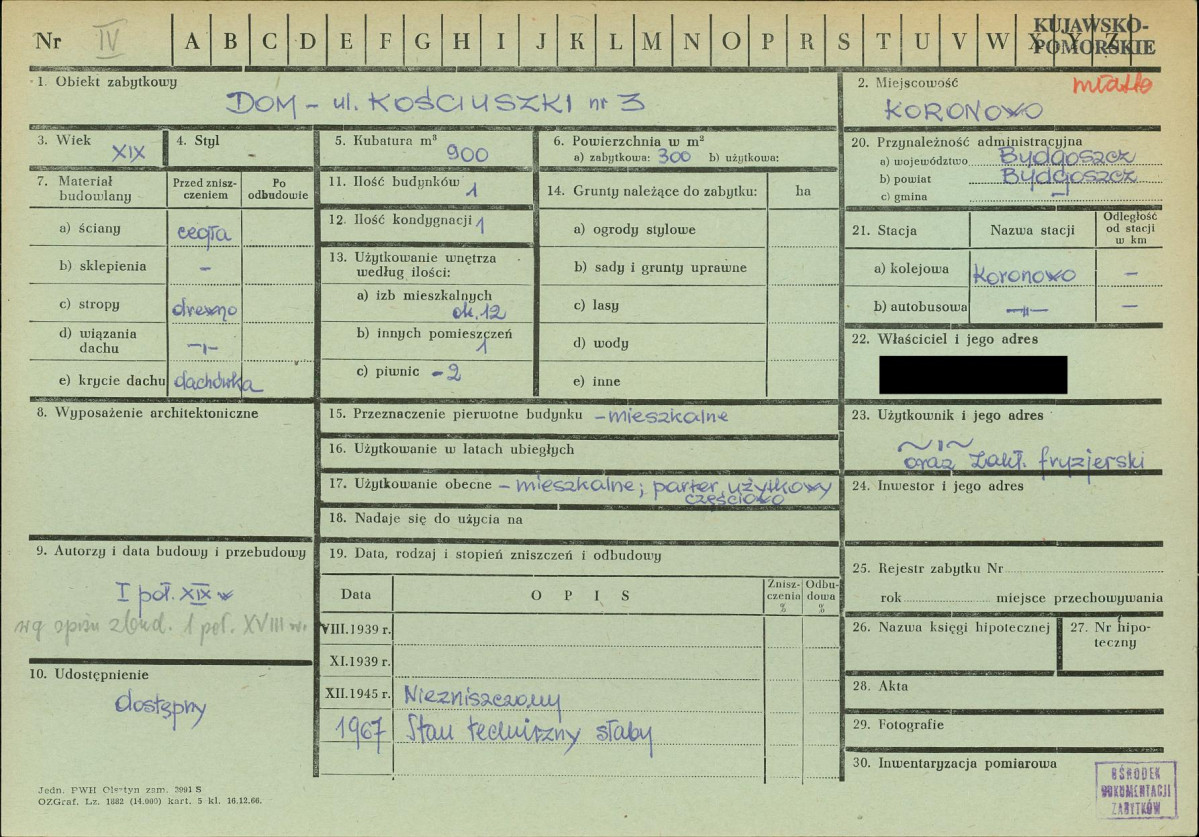 Nr IV A B C D E F G H I J K L M N O P R S T U V W X Y Z
KUJAWSKO-
POMORSKIE
1. Obiekt zabytkowy
DOM - ul. KOŚCIUSZKI nr 3
2. Miejscowość
miasto
KORONOWO
3. Wiek
XIX
4. Styl
-
5. Kubatura m³
900
6. Powierzchnia w m²
a) zabytkowa: 300 b) użytkowa:
20. Przynależność administracyjna
a) województwo Bydgoszcz
b) powiat Bydgoszcz
c) gmina -
7. Materiał
budowlany
Przed znisz-
czeniem
Po
odbudowie
a) ściany cegła
b) sklepienia -
c) stropy drewno
d) wiązania
dachu -"-
e) krycie dachu dachówka
11. Ilość budynków 1
12. Ilość kondygnacji 1
13. Użytkowanie wnętrza
według ilości:
a) izb mieszkalnych
ok. 12
b) innych pomieszczeń
1
c) piwnic - 2
14. Grunty należące do zabytku: ha
a) ogrody stylowe
b) sady i grunty uprawne
c) lasy
d) wody
e) inne
21. Stacja Nazwa stacji
Odległość
od stacji
w km
a) kolejowa Koronowo -
b) autobusowa -"- -
22. Właściciel i jego adres
8. Wyposażenie architektoniczne
15. Przeznaczenie pierwotne budynku - mieszkalne
16. Użytkowanie w latach ubiegłych
17. Użytkowanie obecne - mieszkalne; parter użytkowy
częściowo
18. Nadaje się do użycia na
23. Użytkownik i jego adres
~ " ~
oraz zakł. fryzjerski
24. Inwestor i jego adres
9. Autorzy i data budowy i przebudowy
I poł. XIX w
wg opisu zbud. 1 poł. XVIII w.
10. Udostępnienie
dostępny
19. Data, rodzaj i stopień zniszczeń i odbudowy
Data OPIS
Znisz-
czenia
%
Odbu-
dowa
%
VIII.1939 r.
XI.1939 r.
XII.1945 r. Niezniszczony
1967 Stan techniczny słaby
25. Rejestr zabytku Nr
rok miejsce przechowywania
26. Nazwa księgi hipotecznej
27. Nr hipo-
teczny
28. Akta
29. Fotografie
30. Inwentaryzacja pomiarowa
OŚRODEK
DOKUMENTACJI
ZABYTKÓW
Jedn. PWH Olsztyn zam. 3991 S
OZGraf. Lz. 1882 (14.000) kart. 5 kl. 16.12.66.